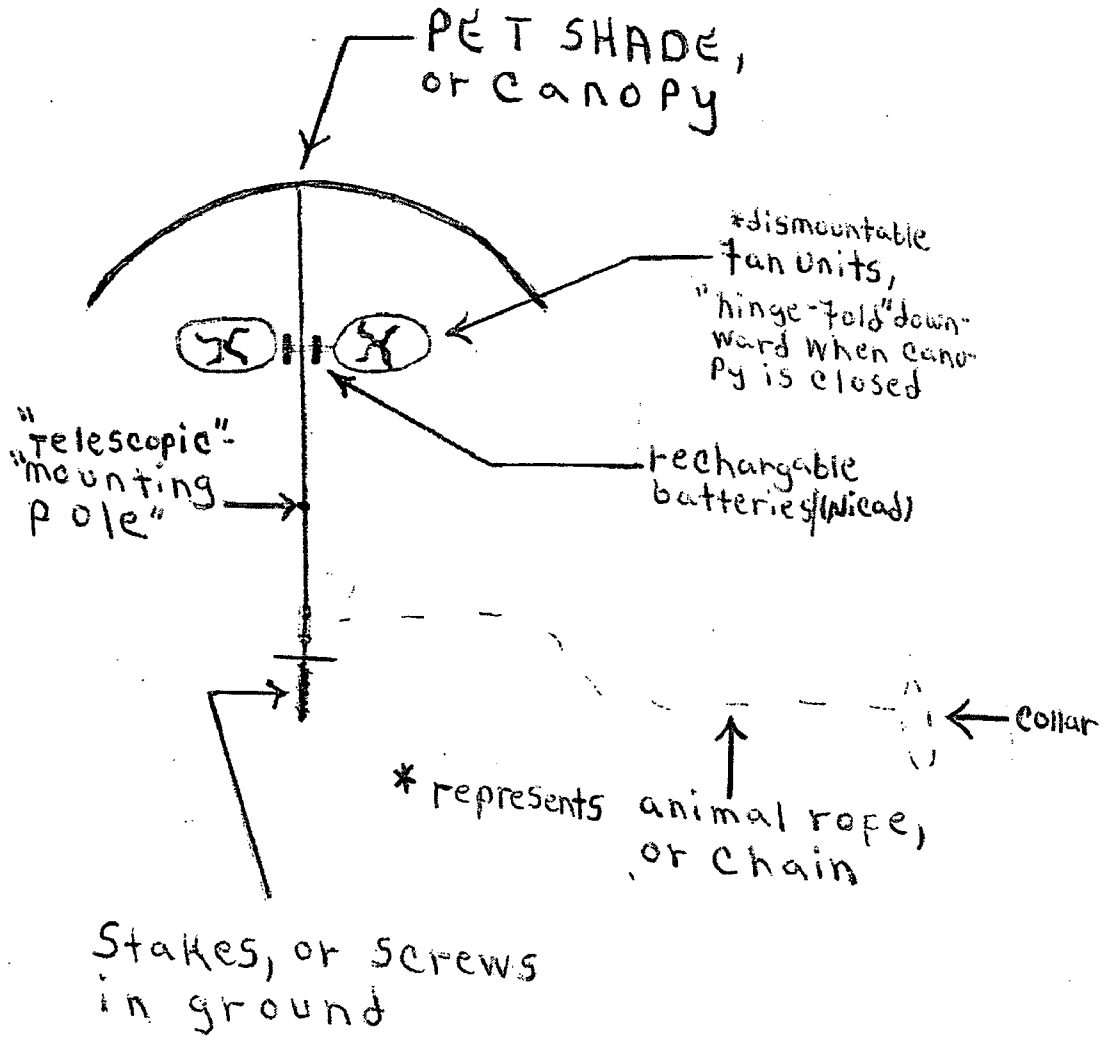 PET SHADE,
or canopy
*dismountable
fan units,
"hinge-fold" down-
ward when cano-
py is closed
"Telescopic"-
"mounting
pole"
rechargable
batteries/(Nicad)
collar
* represents animal rope,
or chain
Stakes, or screws
in ground